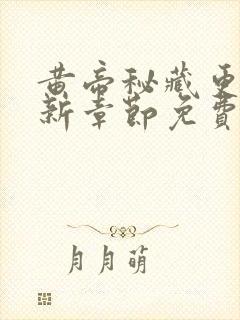 黄帝秘藏更
新章節免費
月月萌